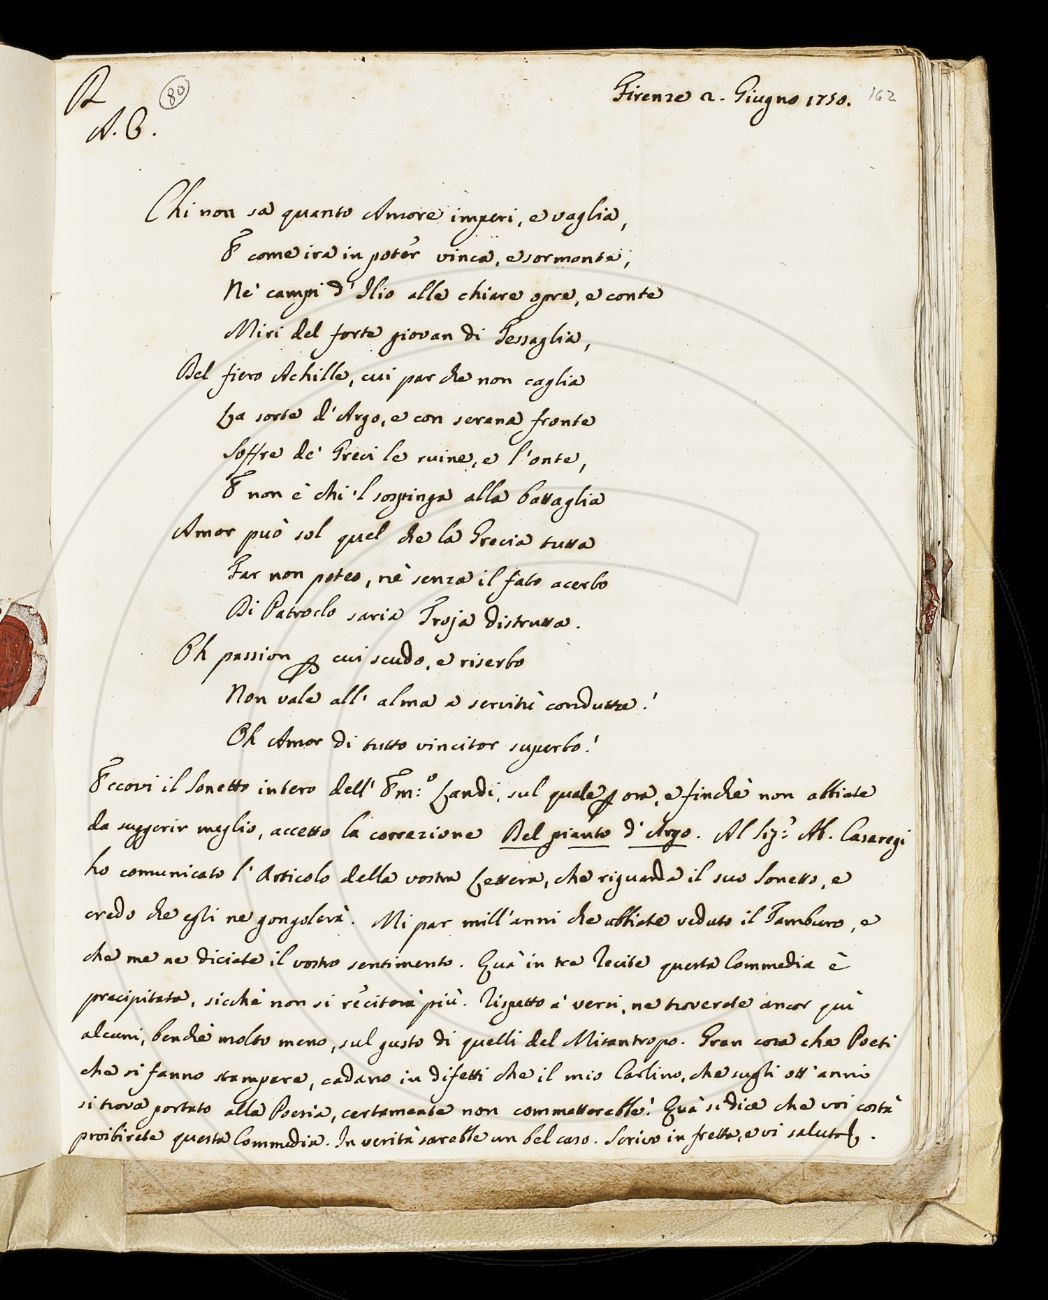 R
80
A. C.
Firenze 2. Giugno 1750.
162
Chi non sa quanto Amore imperi, e vaglia,
E come ira in poter vinca, e sormonte,
Ne' campi d'Ilio alle chiare opre, e conte
Miri del forte giovan di Tessaglia,
Del fiero Achille, cui par che non caglia
La sorte d'Argo, e con serena fronte
Soffre de' Greci le ruine, e l'onte,
E non è chi 'l sospinga alla battaglia
Amor può sol quel che la Grecia tutta
Far non poteo, nè senza il fato acerbo
Di Patroclo saria Troja distrutta.
Oh passion ꝑ cui scudo, e riserbo
Non vale all' alma a servitù condutta!
Oh Amor di tutto vincitor superbo!
Eccovi il Sonetto intero dell' Em:º Landi, sul quale ꝑ ora, e finchè non abbiate
da suggerir meglio, accetto la correzione Del pianto d'Argo. Al Sig.r Ab. Casaregi
ho comunicato l'Articolo della vostra Lettera, che riguarda il suo Sonetto, e
credo che egli ne gongolerà. Mi par mill'anni che abbiate veduto il Tamburo, e
che me ne diciate il vostro sentimento. Quà in tre recite questa Commedia è
precipitata, sicchè non si reciterà più. Rispetto a' versi, ne troverete ancor quì
alcuni, benchè molto meno, sul gusto di quelli del Misantropo. Gran cosa che Poeti
che si fanno stampare, cadano in difetti che il mio Carlino, che sugli ott'anni
si trova portato alla Poesia, certamente non commetterebbe! Quà si dice che voi costà
proibirete questa Commedia. In verità sarebbe un bel caso. Scrivo in fretta, e vi saluto.